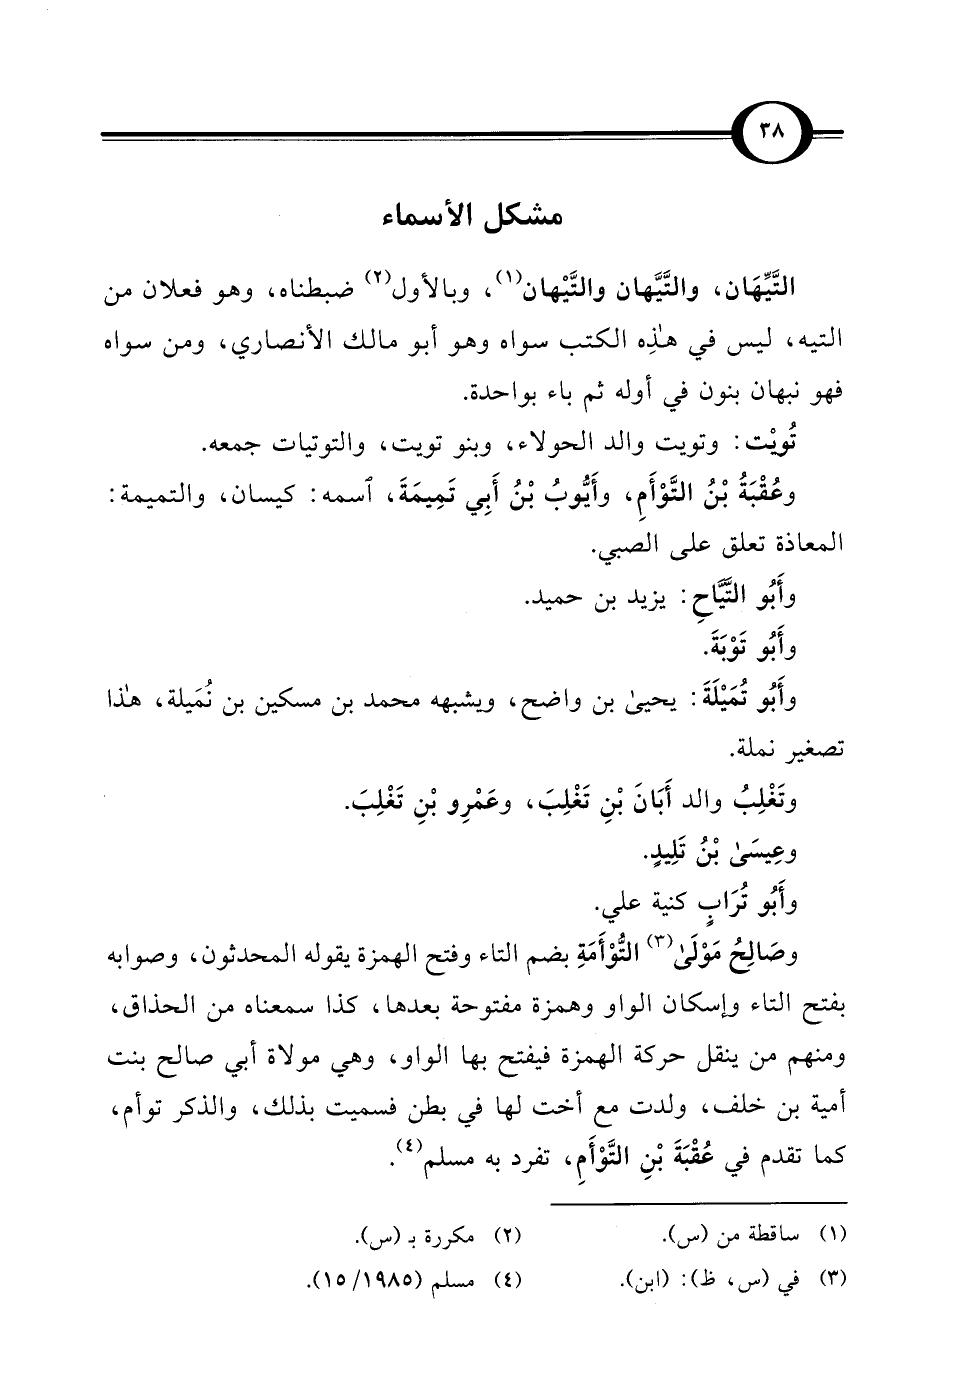 ٣٨
مشكل الأسماء
التَّيِّهَان، والتَّيَّهان والتَّيْهان(١)، وبالأول(٢) ضبطناه، وهو فعلان من
التيه، ليس في هذِه الكتب سواه وهو أبو مالك الأنصاري، ومن سواه
فهو نبهان بنون في أوله ثم باء بواحدة.
تُويْت: وتويت والد الحولاء، وبنو تويت، والتوتيات جمعه.
وعُقْبَةُ بْنُ التَّوْأَمِ، وأَيُّوبُ بْنُ أَبِي تَمِيمَةَ، ٱسمه: كيسان، والتميمة:
المعاذة تعلق على الصبي.
وأَبُو التَّيَّاحِ: يزيد بن حميد.
وأَبُو تَوْبَةَ.
وأَبُو تُمَيْلَةَ: يحيىٰ بن واضح، ويشبهه محمد بن مسكين بن نُمَيلة، هٰذا
تصغير نملة.
وتَغْلِبُ والد أَبَانَ بْنِ تَغْلِبَ، وعَمْرِو بْنِ تَغْلِبَ.
وعِيسَىٰ بْنُ تَلِيدٍ.
وأَبُو تُرَابٍ كنية علي.
وصَالِحُ مَوْلَىٰ(٣) التُّوْأَمَةِ بضم التاء وفتح الهمزة يقوله المحدثون، وصوابه
بفتح التاء وإسكان الواو وهمزة مفتوحة بعدها، كذا سمعناه من الحذاق،
ومنهم من ينقل حركة الهمزة فيفتح بها الواو، وهي مولاة أبي صالح بنت
أمية بن خلف، ولدت مع أخت لها في بطن فسميت بذلك، والذكر توأم،
كما تقدم في عُقْبَةَ بْنِ التَّوْأَمِ، تفرد به مسلم(٤).
(١) ساقطة من (س). (٢) مكررة بـ (س).
(٣) في (س، ظ): (ابن). (٤) مسلم (١٥/١٩٨٥).